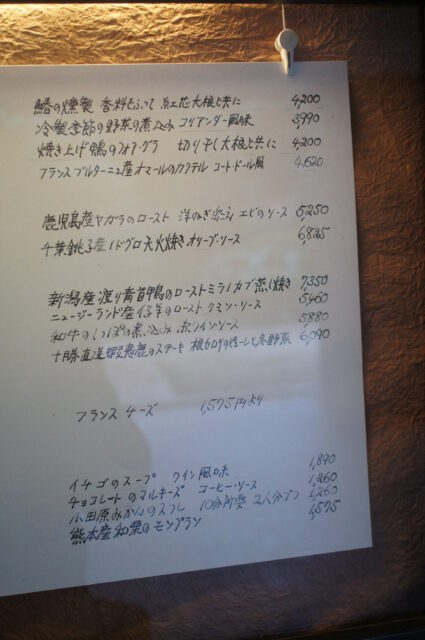 鰆の燻製 香料をふって 紅芯大根と共に 4,200
冷製季節の野菜の煮込み コリアンダー風味 3,990
焼き上げ鴨のフォア・グラ 切り干し大根と共に 4,200
フランスブルターニュ産オマールのカクテル コートドール風 4,620
鹿児島産ヤガラのロースト 洋ねぎ添え エビのソース 5,250
千葉銚子産ノドグロ天火焼き オリーブ・ソース 6,825
新潟産渡り青首鴨のロースト ミラノカブ蒸し焼き 7,350
ニュージーランド産仔羊のロースト クミン・ソース 5,460
和牛のしっぽの煮込み 赤ワイン・ソース 5,880
十勝直送蝦夷鹿のステーキ 根セロリのピューレと冬野菜 6,090
フランス チーズ 1,575円より
イチゴのスープ ワイン風味 1,890
チョコレートのマルキーズ コーヒー・ソース 1,260
小田原みかんのスフレ 10分所要 2人分ヅツ 1,260
熊本産和栗のモンブラン 1,575